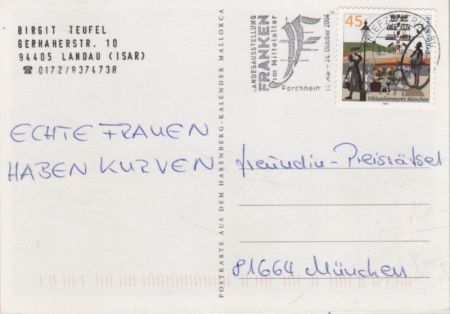 BIRGIT TEUFEL
GERHAHERSTR. 10
94405 LANDAU (ISAR)
☎ 0172/8374738
ECHTE FRAUEN
HABEN KURVEN
POSTKARTE AUS DEM HARENBERG-KALENDER MALLORCA
LANDESAUSSTELLUNG
FRANKEN
im Mittelalter
Forchheim
11. Mai - 24. Oktober 2004
45
Viktualienmarkt München
freundin-Preisrätsel
81664 München